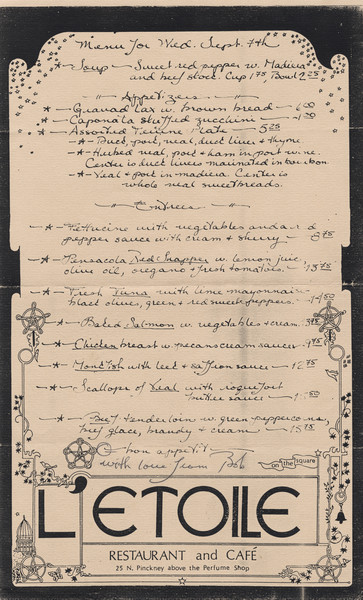 Menu for Wed. Sept. 7th
* — Soup — Sweet red pepper w. Madiera
and beef stock. Cup 1.75, Bowl 2.25
Appetizers
* — Gravad lax w. brown bread —
* — Caponata stuffed zucchini —
* — Assorted Terrine Plate — 5.25
-*- Duck, pork, veal, duct liver & thyme
-*- Herbed veal, pork & ham in port wine.
Center is duct livers marinated in bourbon
-*- Veal & pork in madeira Center is
whole veal sweetbreads.
Entrees
* — Fettucine with vegetables and a red
pepper sauce with cream & sherry —
* — Pensacola Red Snapper w. lemon juic
olive oil, oregano & fresh tomatoes. — 13.75
* — Fresh Tuna with lime mayonnaise
black olives, green & red sweet peppers.
* — Baked Salmon w. vegetables & cream
* — Chicken breast w. pecan cream sauce
* — Monkfish with leek & saffron sauce — 12.75
* — Scallops of Veal with roquefort
butter sauce
* — Beef tenderloin w. green peppercorns,
beef glace, brandy & cream — 15.75
bon appetit
with love from Bob
on the square
L'ETOILE
RESTAURANT and CAFÉ
25 N. Pinckney above the Perfume Shop